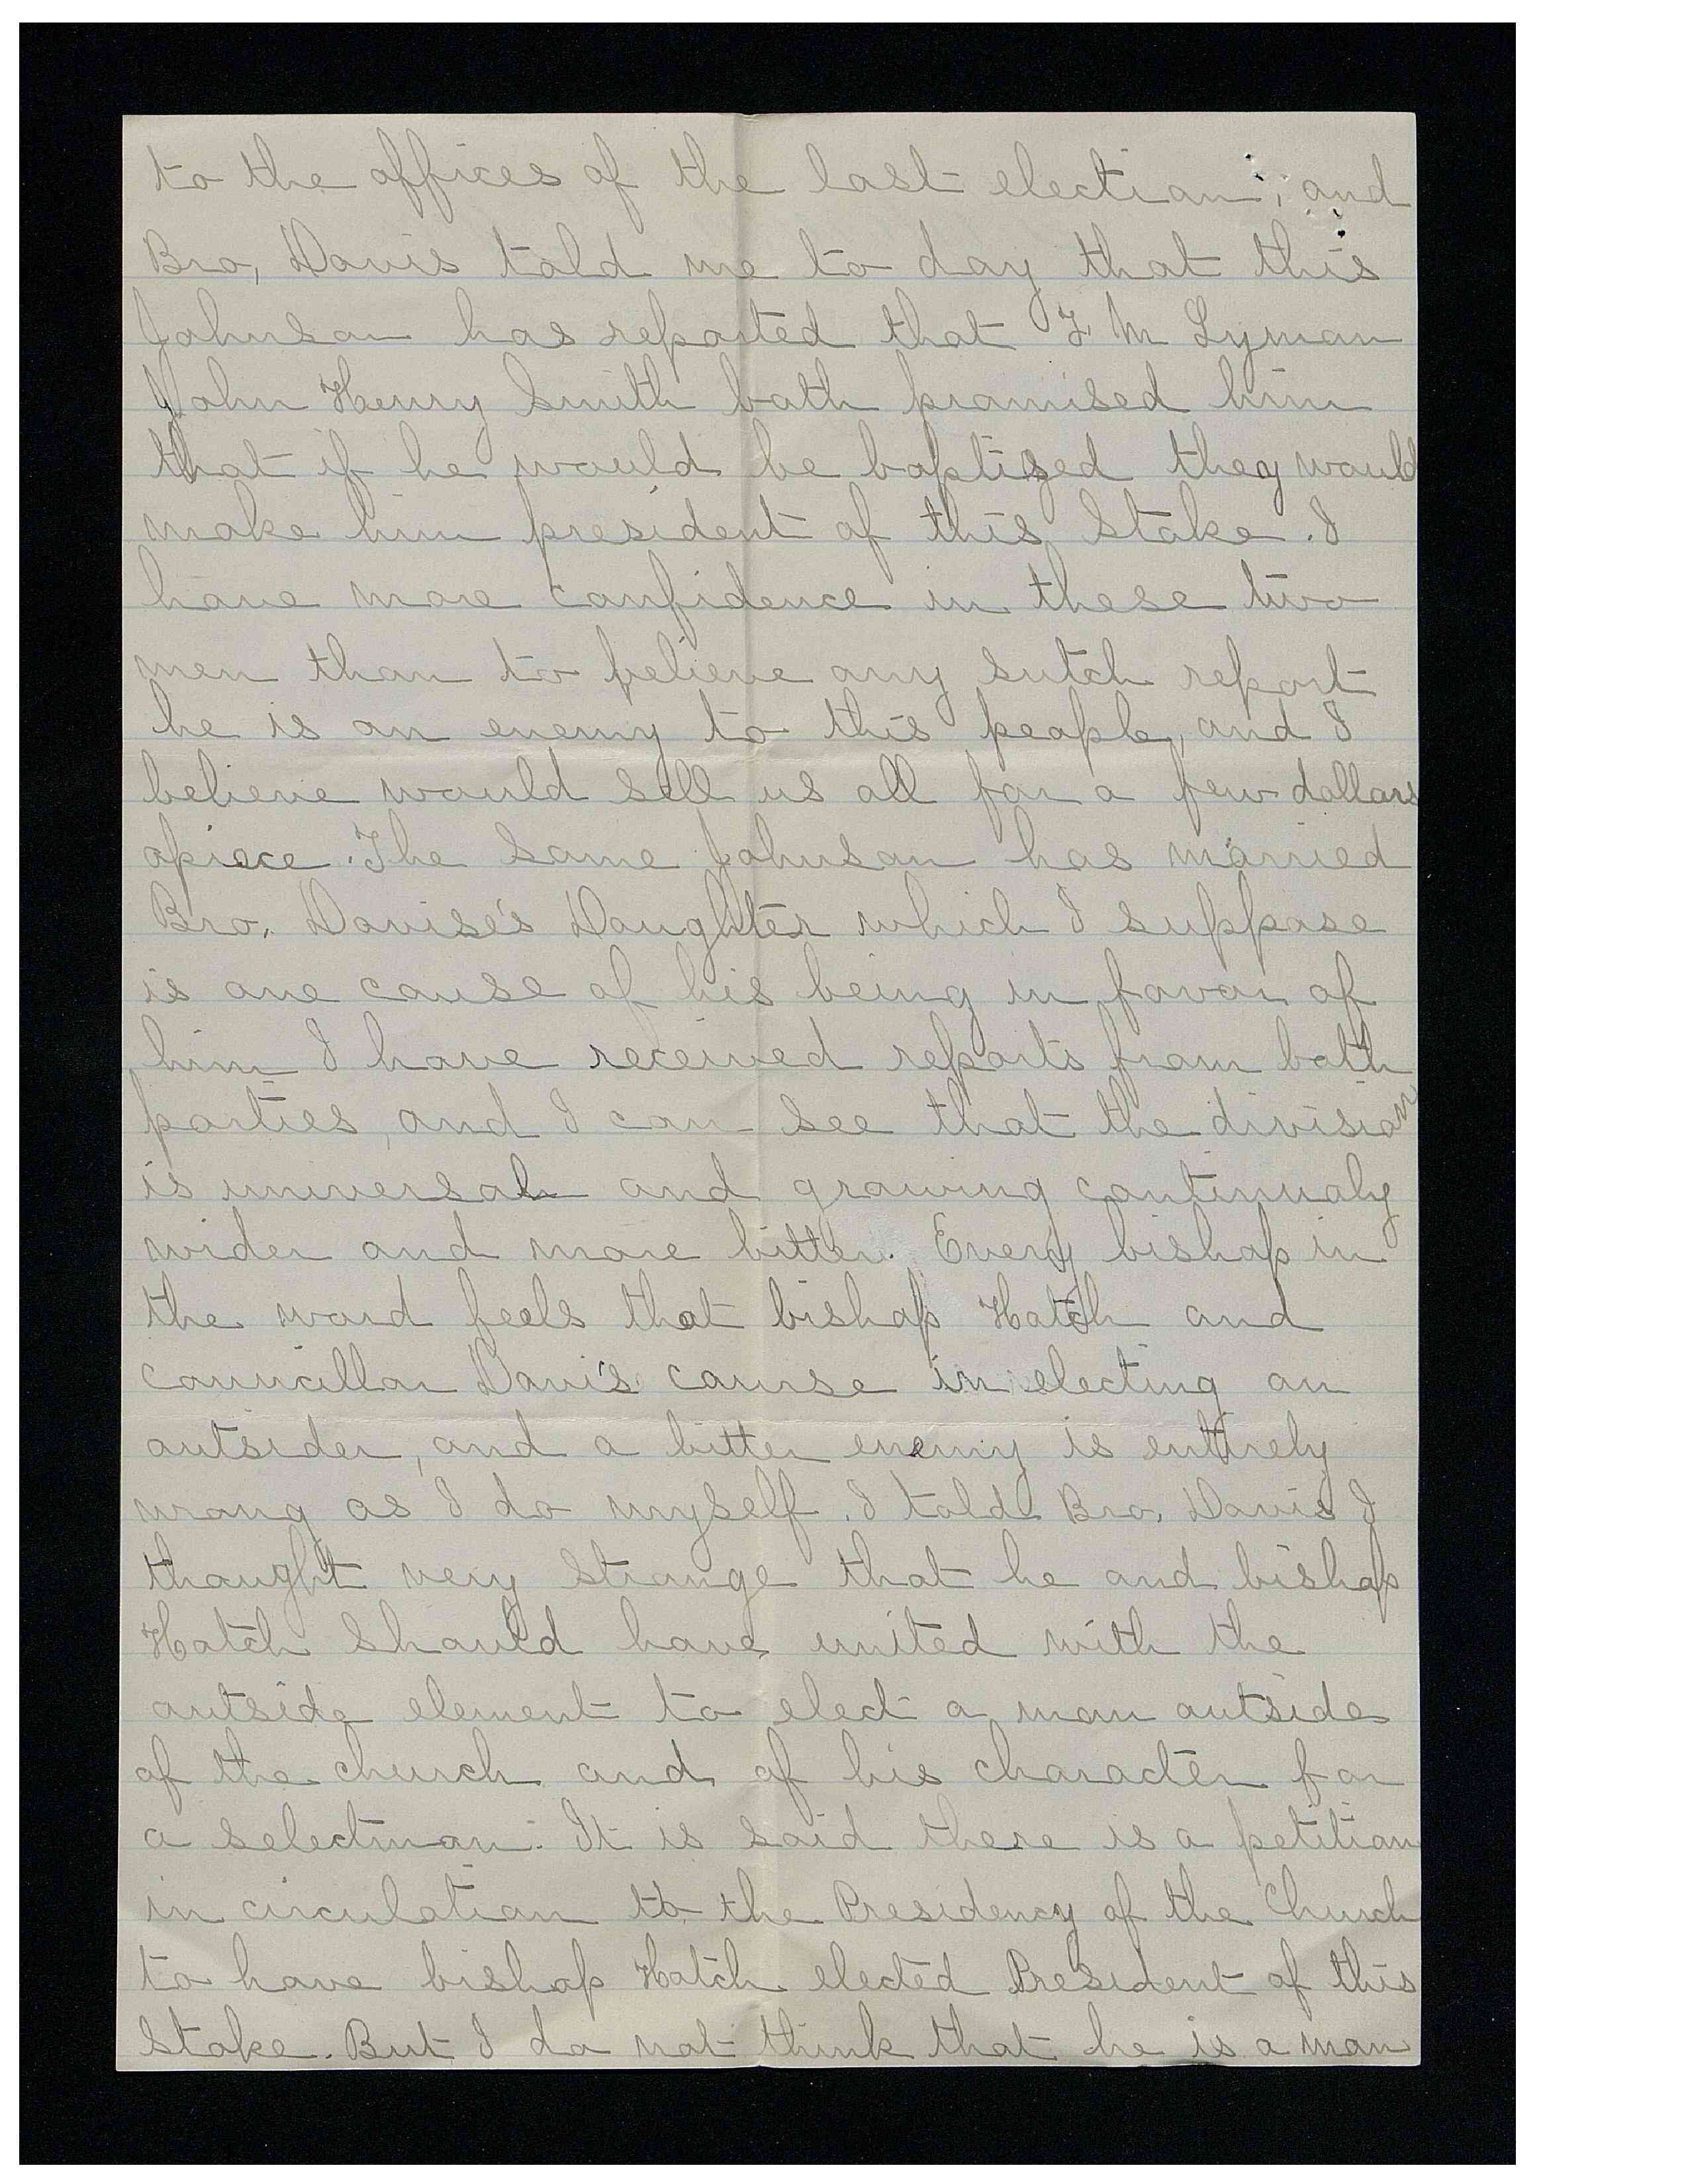 to the offices of the last election, and
Bro, Davis told me to day that this
Johnson has reported that F. M Lyman
John Henry Smith both promised him
that if he would be baptized they would
make him president of this Stake. I
have more confidence in these two
men than to believe any sutch report
he is an enemy to this people, and I
believe would sell us all for a few dollars
apiece. The same Johnson has married
Bro. Davise's Daughter which I suppose
is one cause of his being in favor of
him I have received reports from both
parties, and I can see that the division
is universal and growing continualy
wider and more bitter. Every bishop in
the ward feels that bishop Hatch and
councillor Davis course in electing an
outsider, and a bitter enemy is entirely
wrong as I do myself. I told Bro. Davis I
thought very strange that he and bishop
Hatch should have united with the
outside element to elect a man outside
of the church and of his character for
a selectman. It is said there is a petition
in circulation to the Presidency of the Church
to have bishop Hatch elected President of this
Stake. But I do not think that he is a man